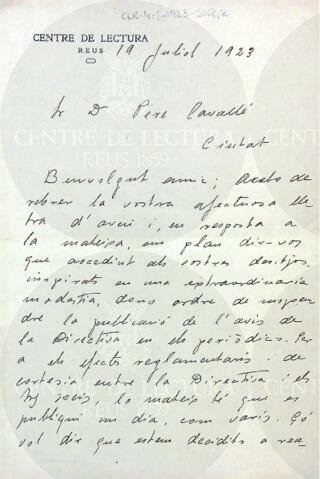 CLR-4-1-1923-
CENTRE DE LECTURA
REUS
19 Juliol 1923
Sr D Pere Cavallé
Ciutat
CENTRE DE LECTURA
REUS 1859
Benvolgut amic; Acabo de
rebrer la vostra afectuosa lle-
tra d'avui i, en resposta a
la mateixa, em plau dir-vos
que accedint als vostres desitjos,
inspirats en una extraordinaria
modestia, dono ordre de suspen-
dre la publicació de l'avis de
la Directiva en els periòdics. Per
a els efectes reglamentaris i de
cortesia entre la Directiva i els
socis, lo mateix té que es
publiqui un dia, com varis. Ço
vol dir que estem decidits a rea-